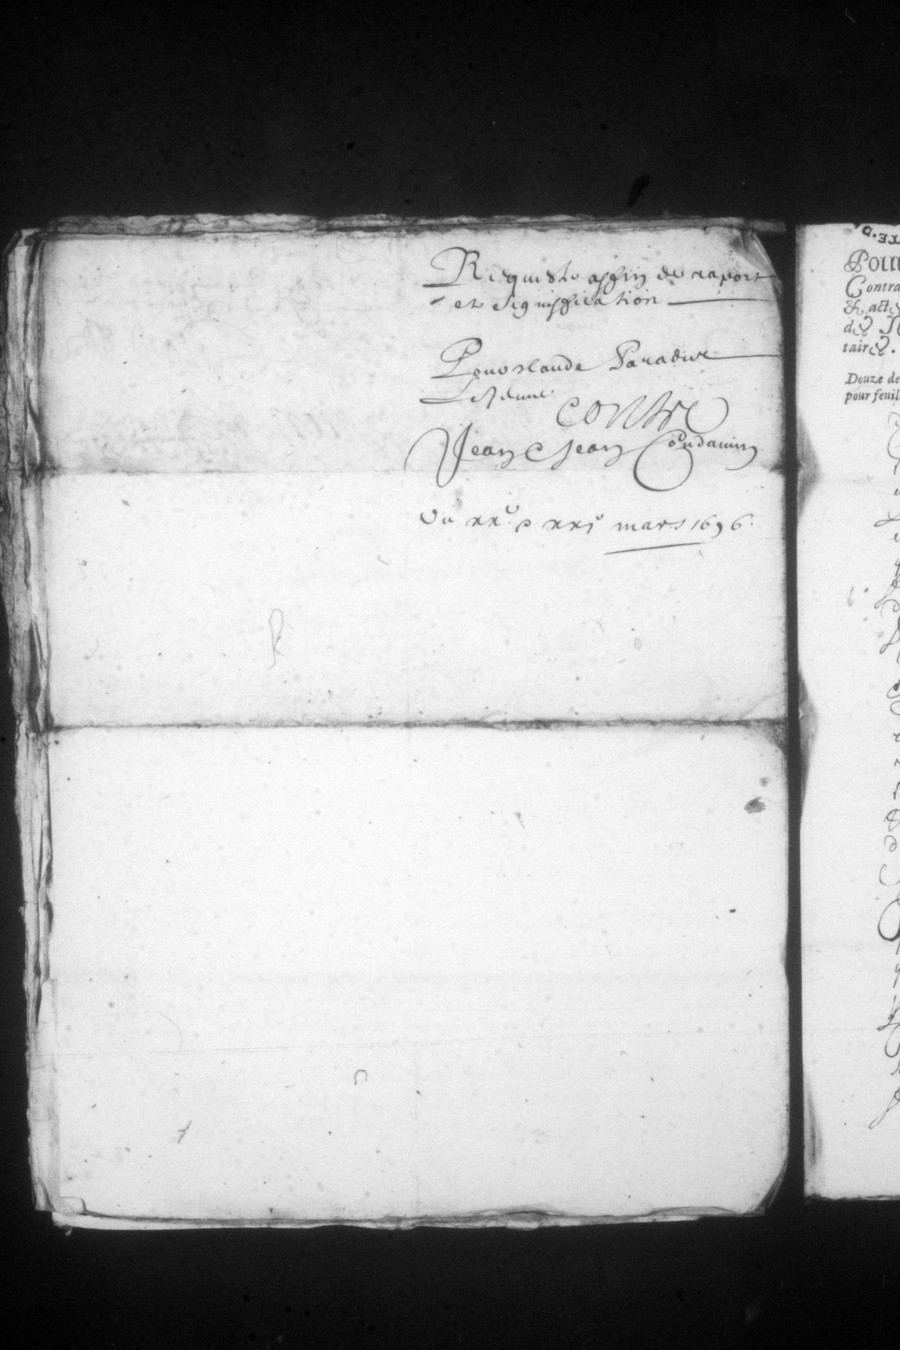 Requeste affin de raport
et signiffication
Pour claude Paradis
Lesleune
contre
Jean e Jean Coudamin
Du xx.e e xxje mars 1696.
TE.D
Pour
Contra
& acte
des N
taires.
Douze de
pour feuil